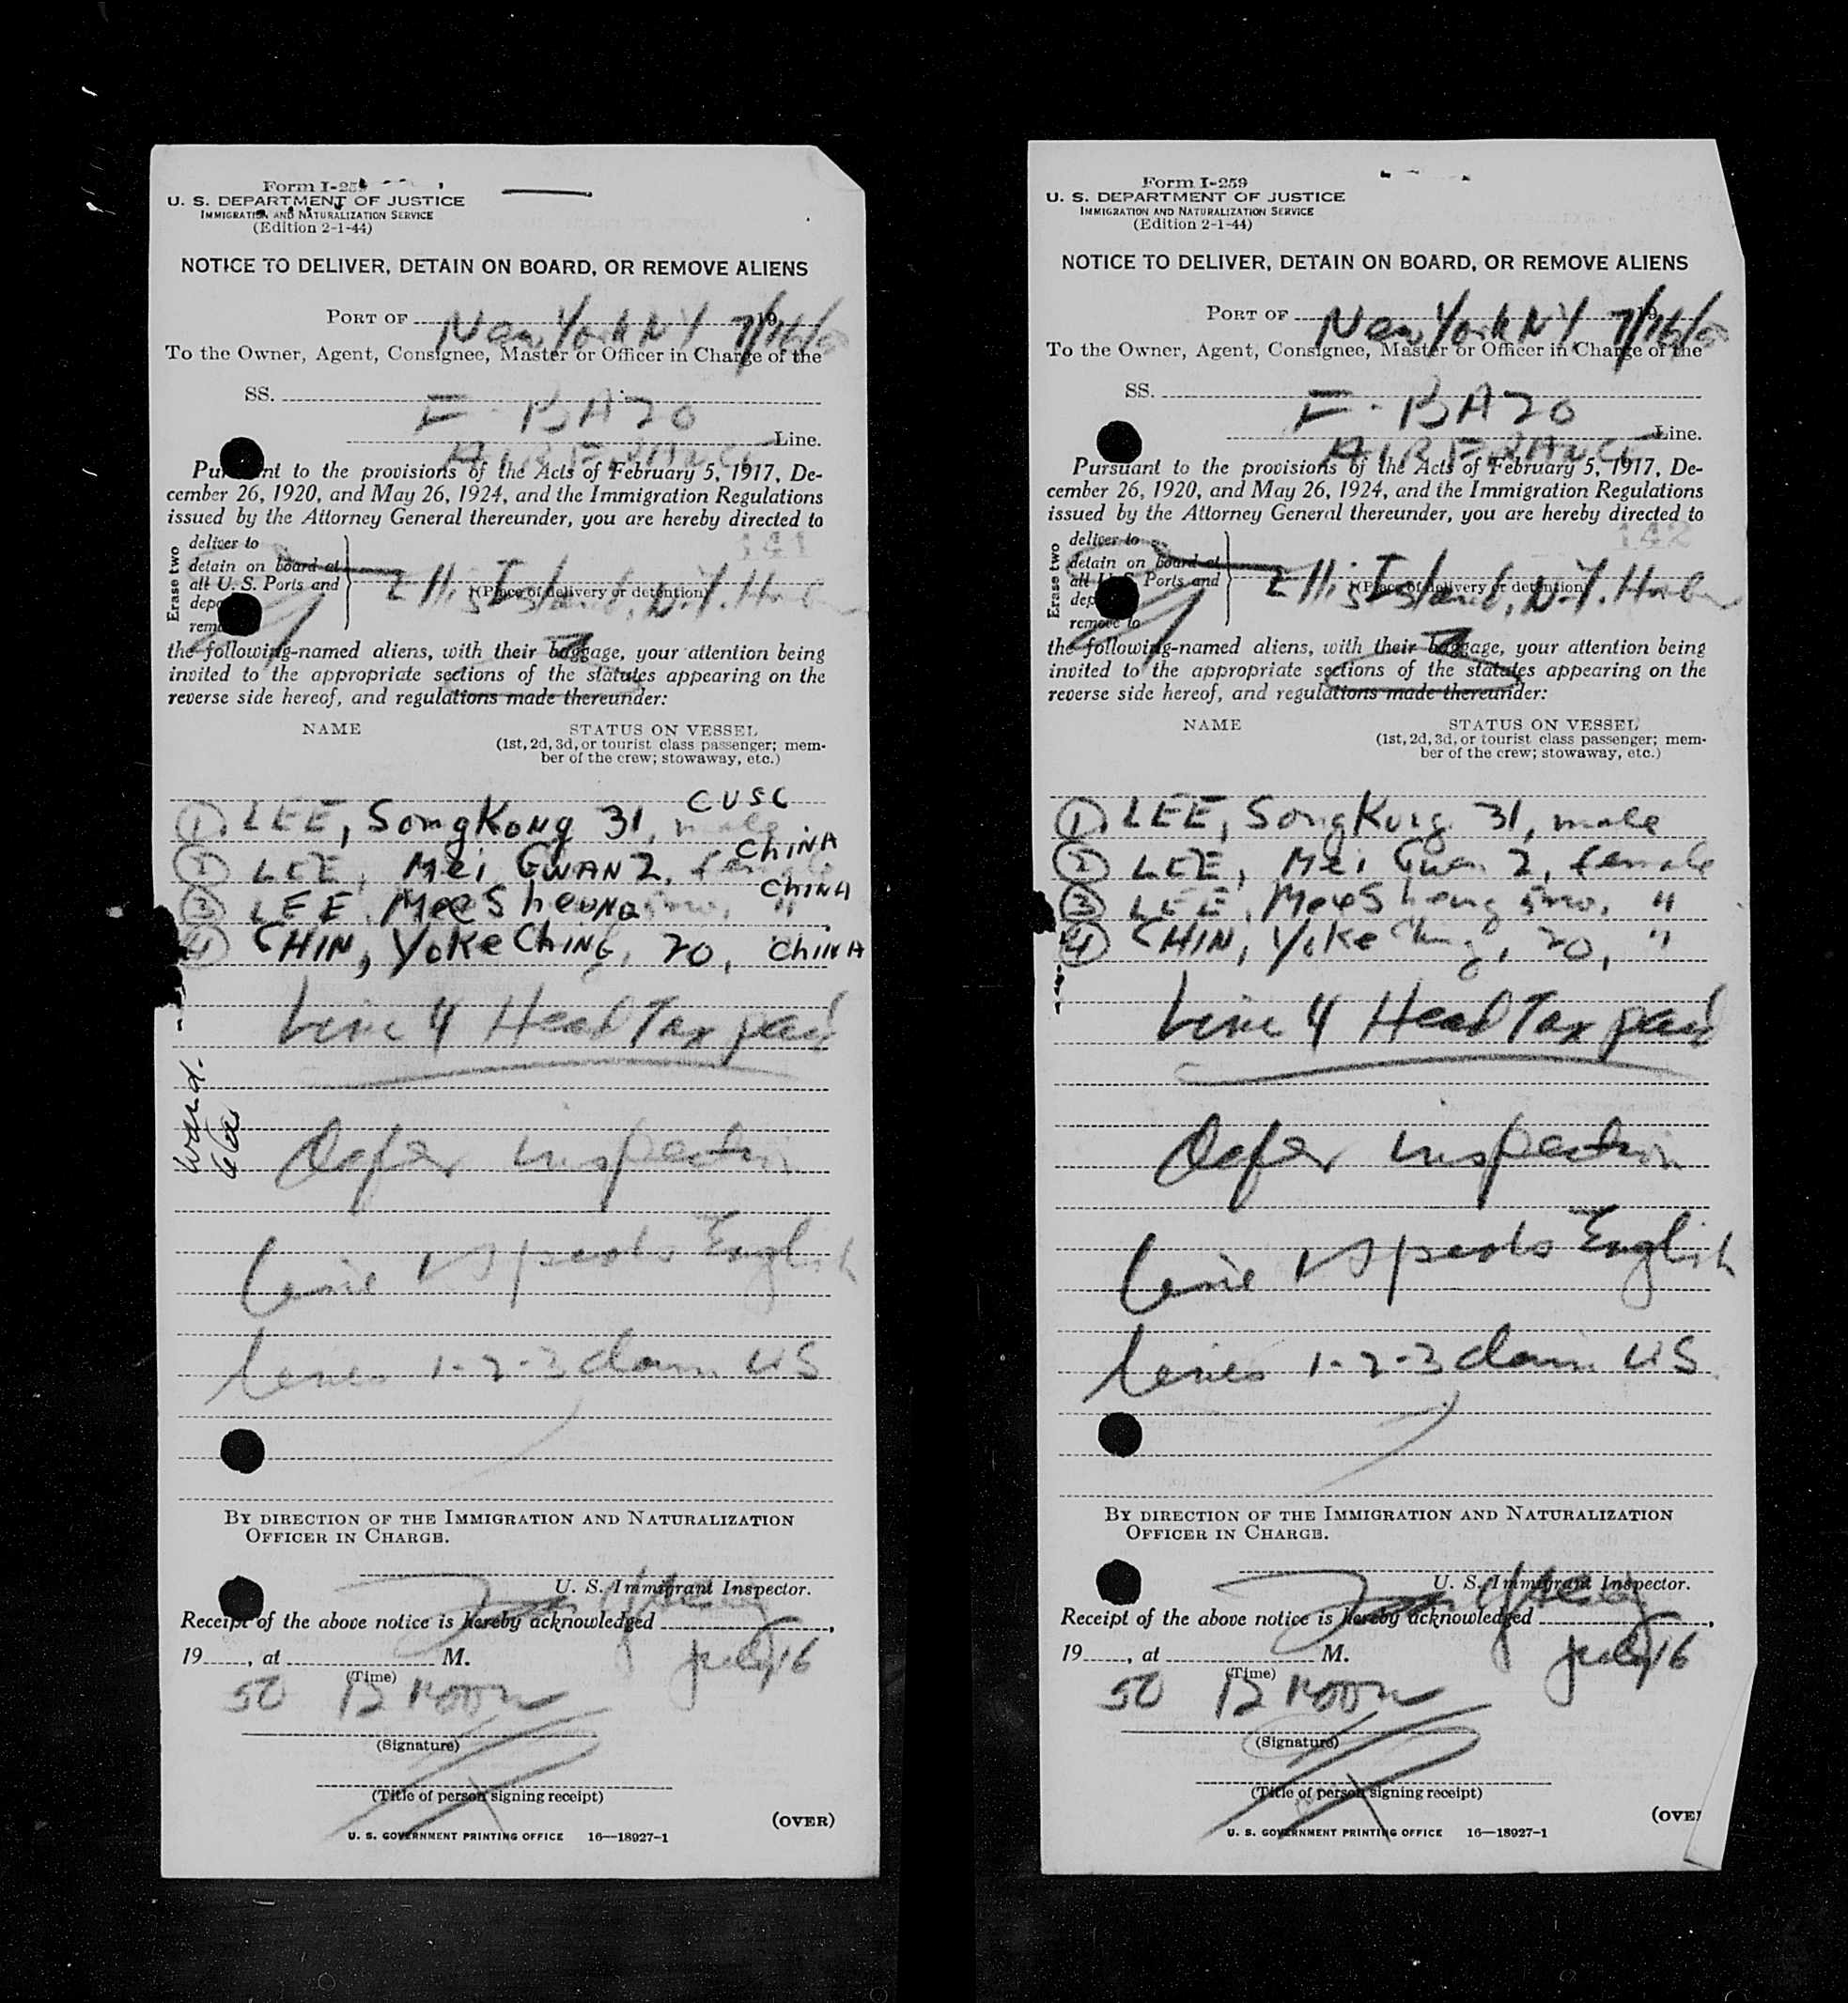 Form I-259
U. S. DEPARTMENT OF JUSTICE
IMMIGRATION AND NATURALIZATION SERVICE
(Edition 2-1-44)
NOTICE TO DELIVER, DETAIN ON BOARD, OR REMOVE ALIENS
PORT OF New York NY 7/16/50 19
To the Owner, Agent, Consignee, Master or Officer in Charge of the
SS. F-BAZO
AIR FRANCE Line.
Pursuant to the provisions of the Acts of February 5, 1917, De-
cember 26, 1920, and May 26, 1924, and the Immigration Regulations
issued by the Attorney General thereunder, you are hereby directed to
141
Erase two
deliver to
detain on board at
all U. S. Ports and
remove to
Ellis Island, N.Y. Harbor
(Place of delivery or detention)
the following-named aliens, with their baggage, your attention being
invited to the appropriate sections of the statutes appearing on the
reverse side hereof, and regulations made thereunder:
NAME STATUS ON VESSEL
(1st, 2d, 3d, or tourist class passenger; mem-
ber of the crew; stowaway, etc.)
① LEE, Song Kong 31, male CUSC
② LEE, Mei GWAN 2, female CHINA
③ LEE, Mee Sheung 5mo, " CHINA
④ CHIN, Yoke Ching, 20, CHINA
Line 4 Head Tax paid
Ward.
66a
Defer inspection
Line 1 speaks English
Lines 1-2-3 claim US
BY DIRECTION OF THE IMMIGRATION AND NATURALIZATION
OFFICER IN CHARGE.
U. S. Immigrant Inspector.
Receipt of the above notice is hereby acknowledged July 16,
19 50, at 12 noon M.
(Time)
(Signature)
(Title of person signing receipt)
(OVER)
U. S. GOVERNMENT PRINTING OFFICE 16—18927-1
Form I-259
U. S. DEPARTMENT OF JUSTICE
IMMIGRATION AND NATURALIZATION SERVICE
(Edition 2-1-44)
NOTICE TO DELIVER, DETAIN ON BOARD, OR REMOVE ALIENS
PORT OF New York NY 7/16/50 19
To the Owner, Agent, Consignee, Master or Officer in Charge of the
SS. F-BAZO
AIR FRANCE Line.
Pursuant to the provisions of the Acts of February 5, 1917, De-
cember 26, 1920, and May 26, 1924, and the Immigration Regulations
issued by the Attorney General thereunder, you are hereby directed to
142
Erase two
deliver to
detain on board at
all U. S. Ports and
remove to
Ellis Island, N.Y. Harbor
(Place of delivery or detention)
the following-named aliens, with their baggage, your attention being
invited to the appropriate sections of the statutes appearing on the
reverse side hereof, and regulations made thereunder:
NAME STATUS ON VESSEL
(1st, 2d, 3d, or tourist class passenger; mem-
ber of the crew; stowaway, etc.)
① LEE, Song Kung 31, male
② LEE, Mei Gwan 2, female
③ LEE, Mee Sheung 5mo, "
④ CHIN, Yoke Ching, 20, "
Line 4 Head Tax paid
Defer inspection
Line 1 speaks English
Lines 1-2-3 claim US
BY DIRECTION OF THE IMMIGRATION AND NATURALIZATION
OFFICER IN CHARGE.
U. S. Immigrant Inspector.
Receipt of the above notice is hereby acknowledged July 16,
19 50, at 12 noon M.
(Time)
(Signature)
(Title of person signing receipt)
(OVER
U. S. GOVERNMENT PRINTING OFFICE 16—18927-1